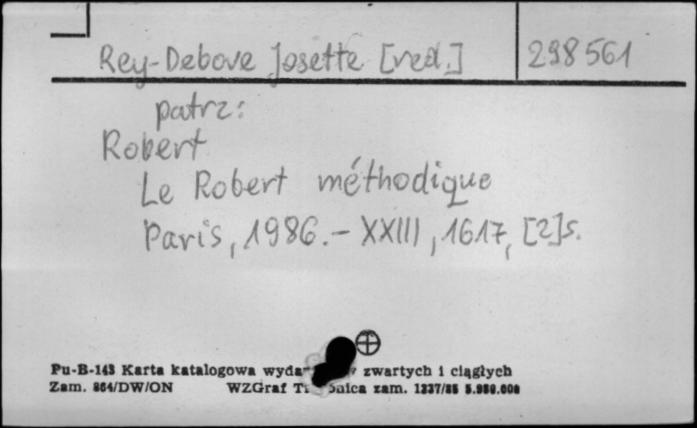 Rey-Debove Josette [red.] 298561
patrz:
Robert
Le Robert méthodique
Paris, 1986.- XXIII, 1617, [2]s.
Pu-B-143 Karta katalogowa zwartych i ciągłych
Zam. 864/DW/ON WZGraf zam. 1337/85